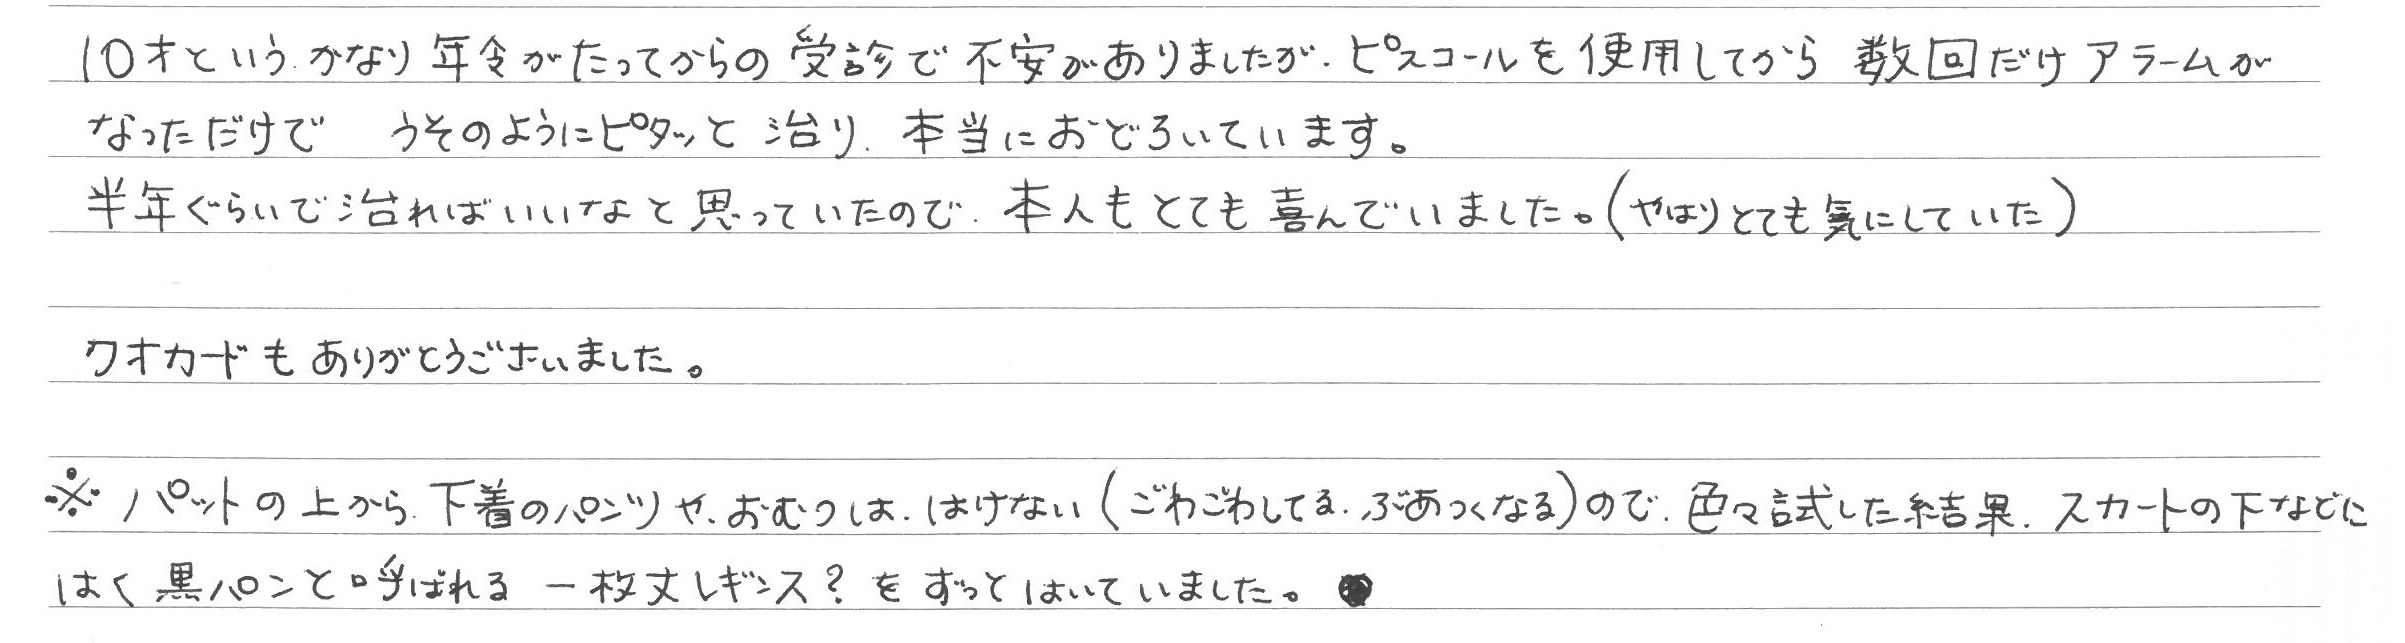 10才という、かなり年令がたってからの受診で不安がありましたが、ピスコールを使用してから 数回だけアラームが
なっただけで うそのようにピタッと治り、本当におどろいています。
半年ぐらいで治ればいいなと思っていたので、本人もとても喜んでいました。(やはりとても気にしていた)
クオカードもありがとうございました。
※パットの上から、下着のパンツや、おむつは、はけない(ごわごわしてる、ぶあつくなる)ので、色々試した結果、スカートの下などに
はく黒パンと呼ばれる 一枚丈レギンス?をずっとはいていました。